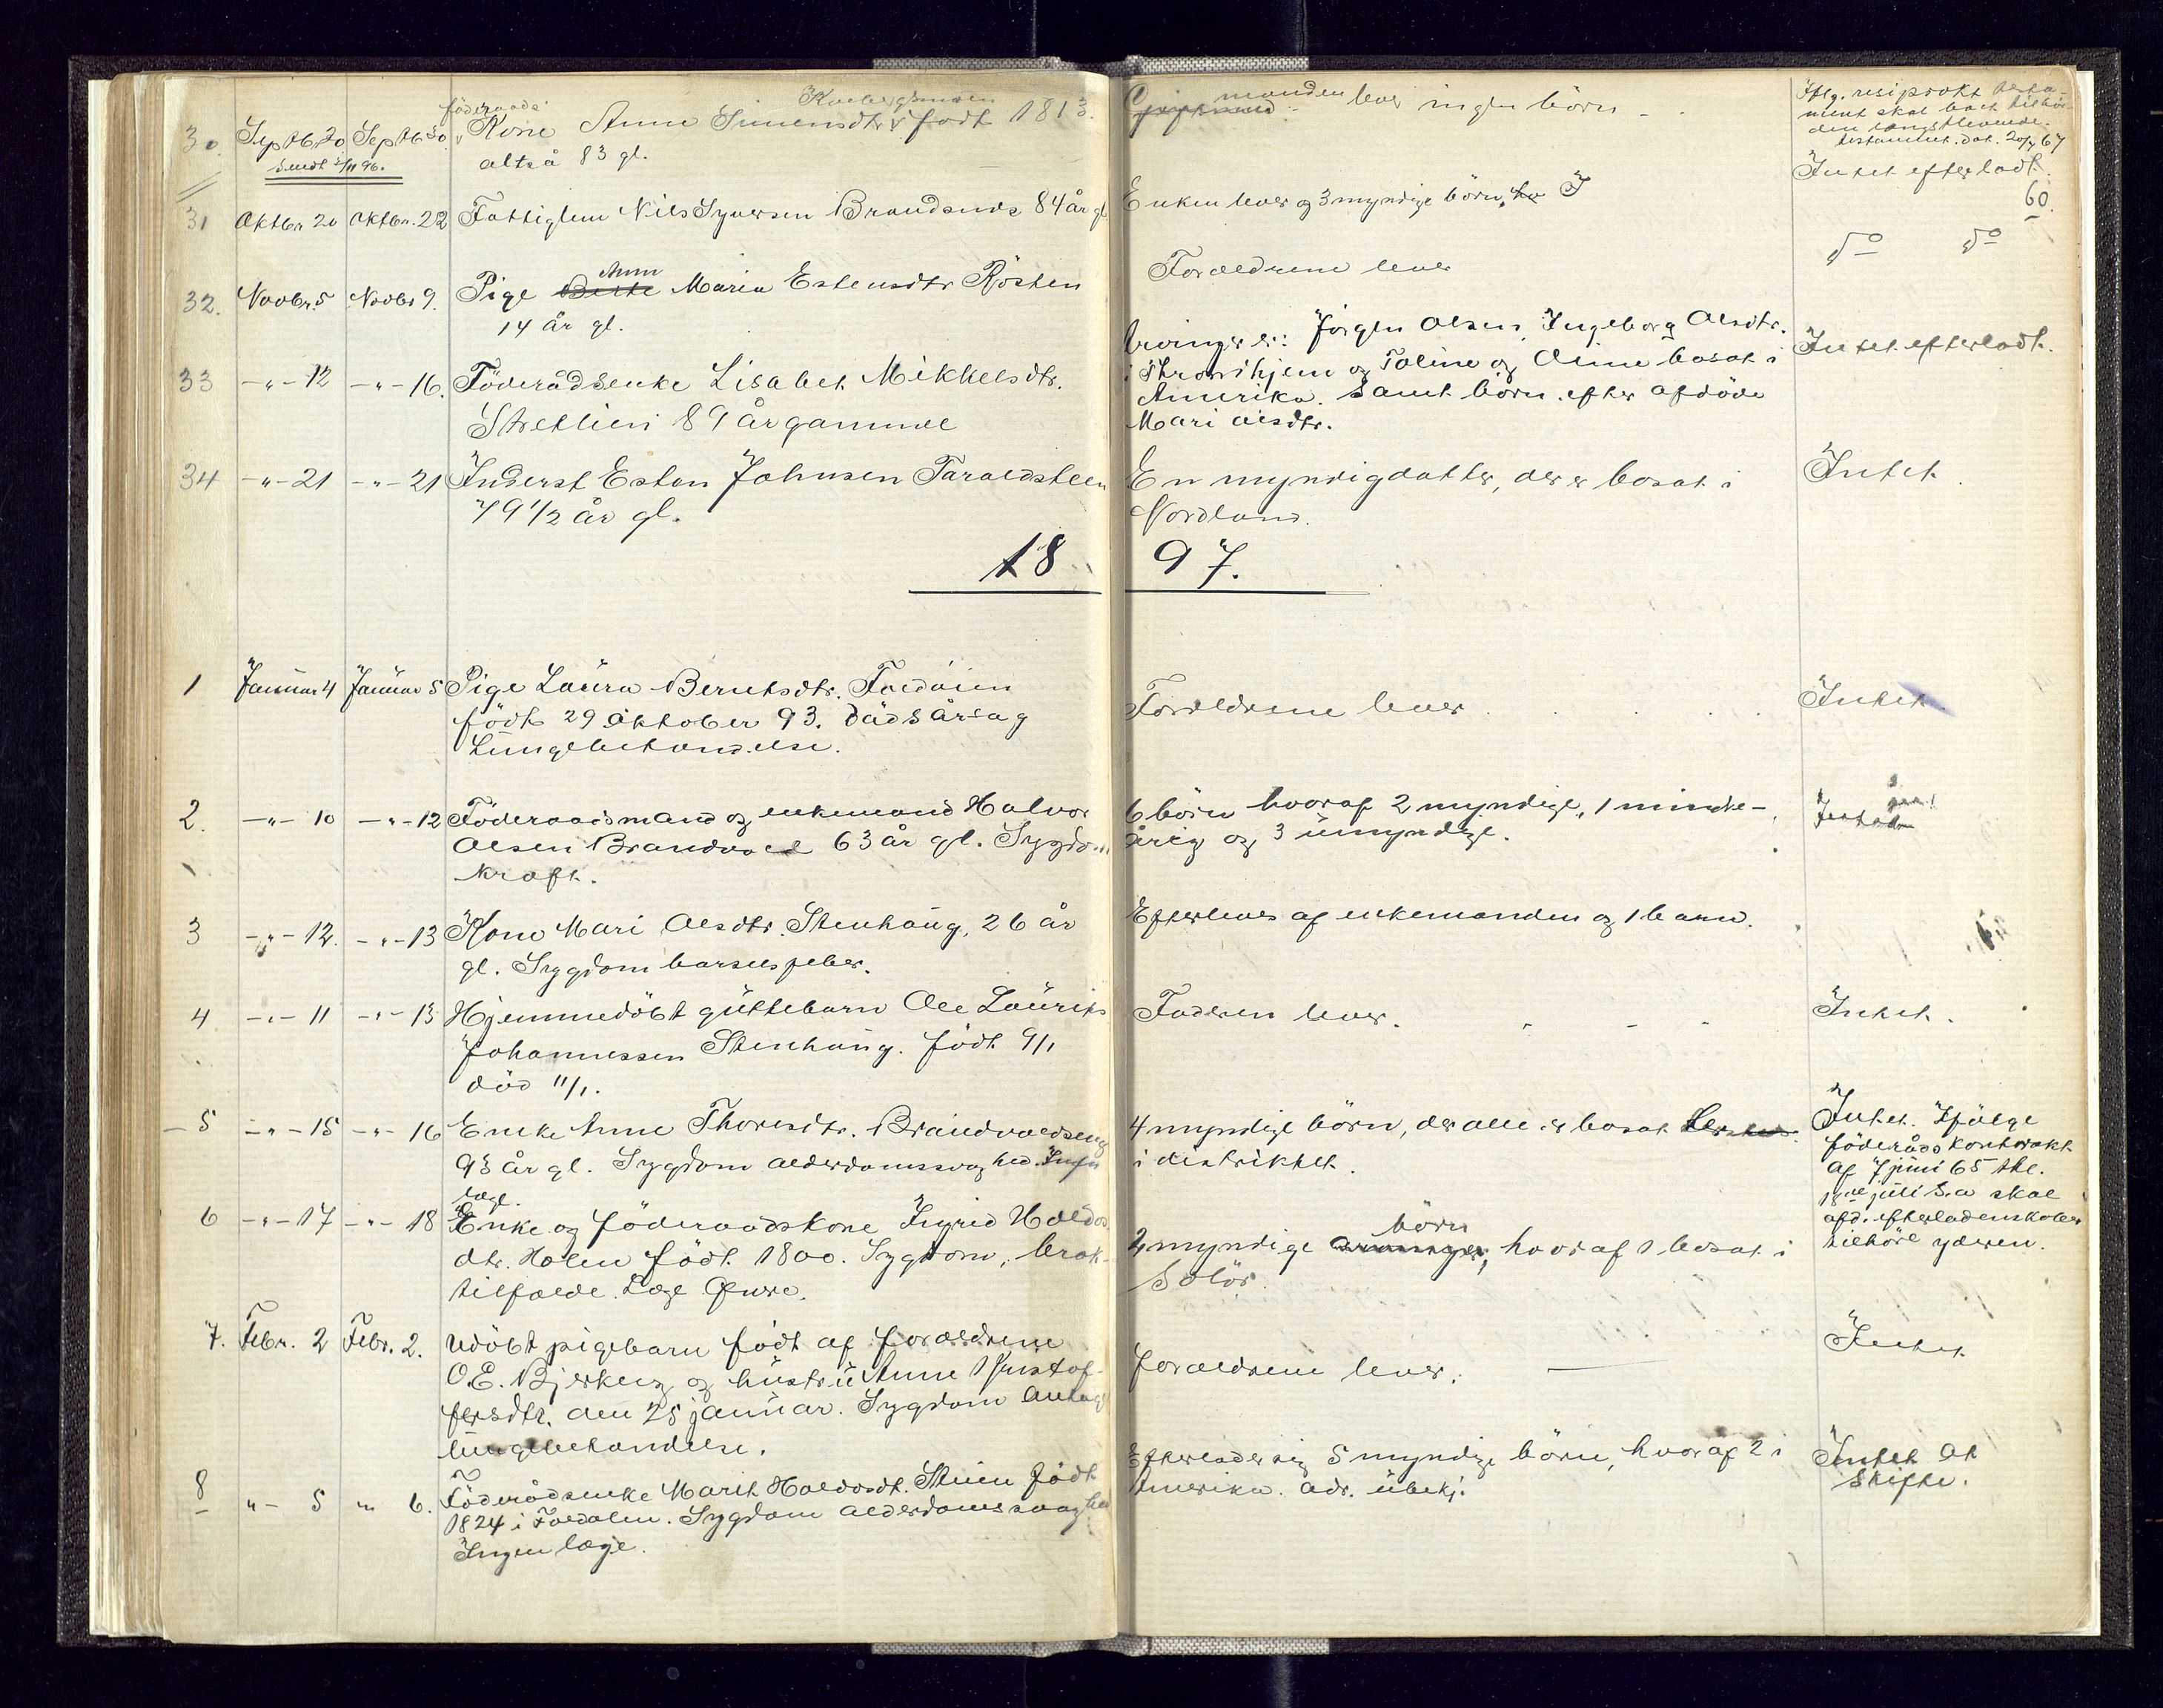 föderaads Koebergmoen manden lever ingen börn Iflg. resiprokt testa-
30. Septb. 20 Septb. 30 Kone Anne Simensdtr. født 1813. ment skal boet tilhöre
Sendt 2/11 96. altså 83 gl. den længstlevende.
testamnt. dat. 20/7 67
Intet efterladt.
31 Oktbr. 20 Oktbr. 22 Fattiglem Nils Syversen Brandsnes 84 år gl. Enken lever og 3 myndige börn. 60.
32. Novbr. 5 Novbr 9. Pige Berte Anne Maria Estensdtr Rösten Forældrene lever do do
14 år gl.
33 -"- 12 -"- 16. Föderådsenke Lisabet Mikkelsdtr. Arvinger er: Jörgen Olsen, Ingeborg Olsdtr. Intet efterladt.
Stretlien 89 år gammel i Thronhjem og Toline og Oline bosat i
Amerika. Samt börn efter afdöde
Mari Olsdtr.
34 -"- 21 -"- 21 Inderst Esten Johnsen Taraldsteen En myndig datter, der er bosat i Intet.
79 1/2 år gl. Nordland.
18 97.
1 Januar 4 Januar 5 Pige Laura Berntsdtr. Foldöien Forældrene lever Intet
födt 29 oktober 93. Dödsårsag
Lungebetændelse.
2. -"- 10 -"- 12 Föderaadsmand og enkemand Halvor 6 börn hvoraf 2 myndige, 1 minde-
Olsen Brandvold 63 år gl. Sygdom årig og 3 umyndige.
kræft.
3 -"- 12. -"- 13 Kone Mari Olsdtr. Stenhaug, 26 år Efterleves af enkemanden og 1 barn.
gl. Sygdom barselfeber.
4 -"- 11 -"- 13 Hjemmedöbt guttebarn Ole Laurits Faderen lever. Intet.
Johannessen Stenhaug. födt 9/1
död 11/1.
5 -"- 15 -"- 16 Enke Anne Thoresdtr. Brandvoldseng 4 myndige börn, der alle er bosat Intet. Ifölge
93 år gl. Sygdom alderdomssvaghed. Ingen i distriktet. föderådskontrakt
læge. af 7 juni 65 thl.
18de juli s.a skal
6 -"- 17 -"- 18 Enke og föderaadskone Ingrid Haldos afd. efterladenskaber
dtr. Holen födt 1800. Sygdom, brok- 2 myndige arvinger börn, hvoraf 1 bosat i tilhöre yderen.
tilfælde. Læge Qware. Solör.
7. Febr. 2 Febr. 2. Udöbt pigebarn födt af forældrene forældrene lever. Intet
O.E. Bjerkeng og hustru Anne Kristof-
fersdtr. den 25 januar. Sygdom antag.
lungebetændelse.
8 " - 5 " 6. Föderådsenke Marit Haldosdt. Stuen födt Efterlader sig 5 myndige börn, hvoraf 2 i Intet at
1824 i Foldalen. Sygdom alderdomssvaghed Amerika. adr. ubekj. Skifte.
Ingen læge.